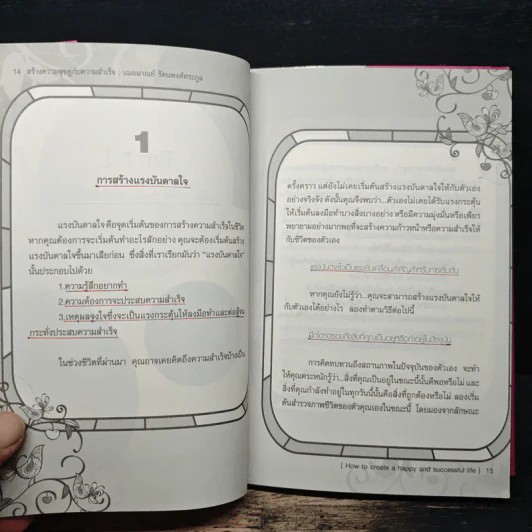 14 สร้างความสุขคู่กับความสำเร็จ : เฌอมาณย์ รัตนพงศ์ตระกูล
1
การสร้างแรงบันดาลใจ
แรงบันดาลใจ คือจุดเริ่มต้นของการสร้างความสำเร็จในชีวิต
หากคุณต้องการจะเริ่มต้นทำอะไรสักอย่าง คุณจะต้องเริ่มต้นสร้าง
แรงบันดาลใจขึ้นมาเสียก่อน ซึ่งสิ่งที่เราเรียกมันว่า "แรงบันดาลใจ"
นั้นประกอบไปด้วย
1.ความรู้สึกอยากทำ
2.ความต้องการจะประสบความสำเร็จ
3.เหตุผลจูงใจซึ่งจะเป็นแรงกระตุ้นให้ลงมือทำและต่อสู้จน
กระทั่งประสบความสำเร็จ
ในช่วงชีวิตที่ผ่านมา คุณอาจเคยคิดถึงความสำเร็จบ้างเป็น
ครั้งคราว แต่ยังไม่เคยเริ่มต้นสร้างแรงบันดาลใจให้กับตัวเอง
อย่างจริงจัง ดังนั้นคุณจึงพบว่า...ตัวเองไม่เคยได้รับแรงกระตุ้น
ให้เริ่มลงมือทำบางสิ่งบางอย่าง หรือมีความมุ่งมั่นหรือเพียร
พยายามอย่างมากพอที่จะสร้างความก้าวหน้าหรือความสำเร็จให้
กับชีวิตของตัวเอง
แรงบันดาลใจเป็นแรงขับเคลื่อนสำคัญสำหรับการเริ่มต้น
หากคุณยังไม่รู้ว่า...คุณจะสามารถสร้างแรงบันดาลใจให้
กับตัวเองได้อย่างไร ลองทำตามวิธีต่อไปนี้
การคิดทบทวนถึงสถานภาพในปัจจุบันของตัวเอง จะทำ
ให้คุณตระหนักรู้ว่า...สิ่งที่คุณเป็นอยู่ในขณะนี้นั้นดีพอหรือไม่ และ
สิ่งที่คุณกำลังทำอยู่ในทุกวันนี้นั้นคือสิ่งที่ถูกต้องหรือไม่ ลองเริ่ม
ต้นสำรวจภาพชีวิตของตัวคุณเองในขณะนี้ โดยมองจากลักษณะ
( How to create a happy and successful life ) 15